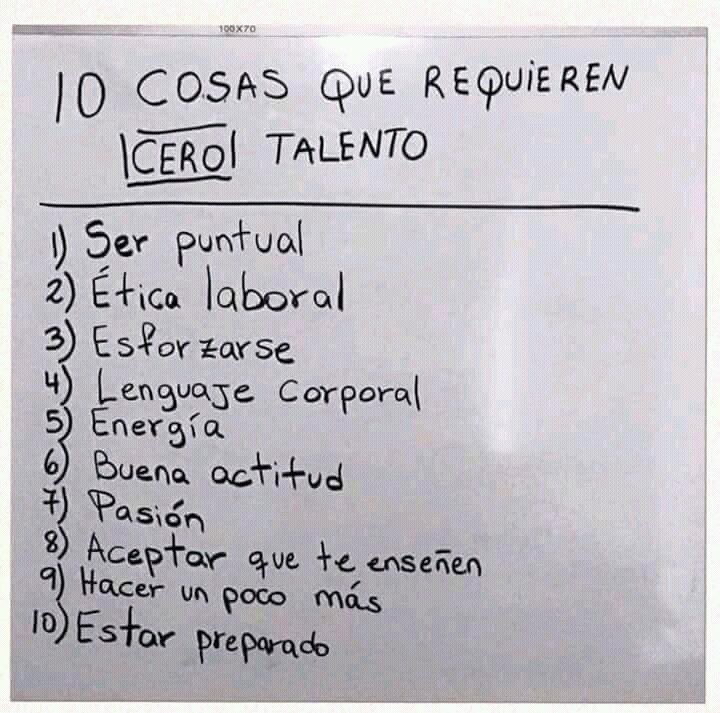 100X70
10 COSAS QUE REQUIEREN
CERO TALENTO
1) Ser puntual
2) Ética laboral
3) Esforzarse
4) Lenguaje corporal
5) Energía
6) Buena actitud
7) Pasión
8) Aceptar que te enseñen
9) Hacer un poco más
10) Estar preparado